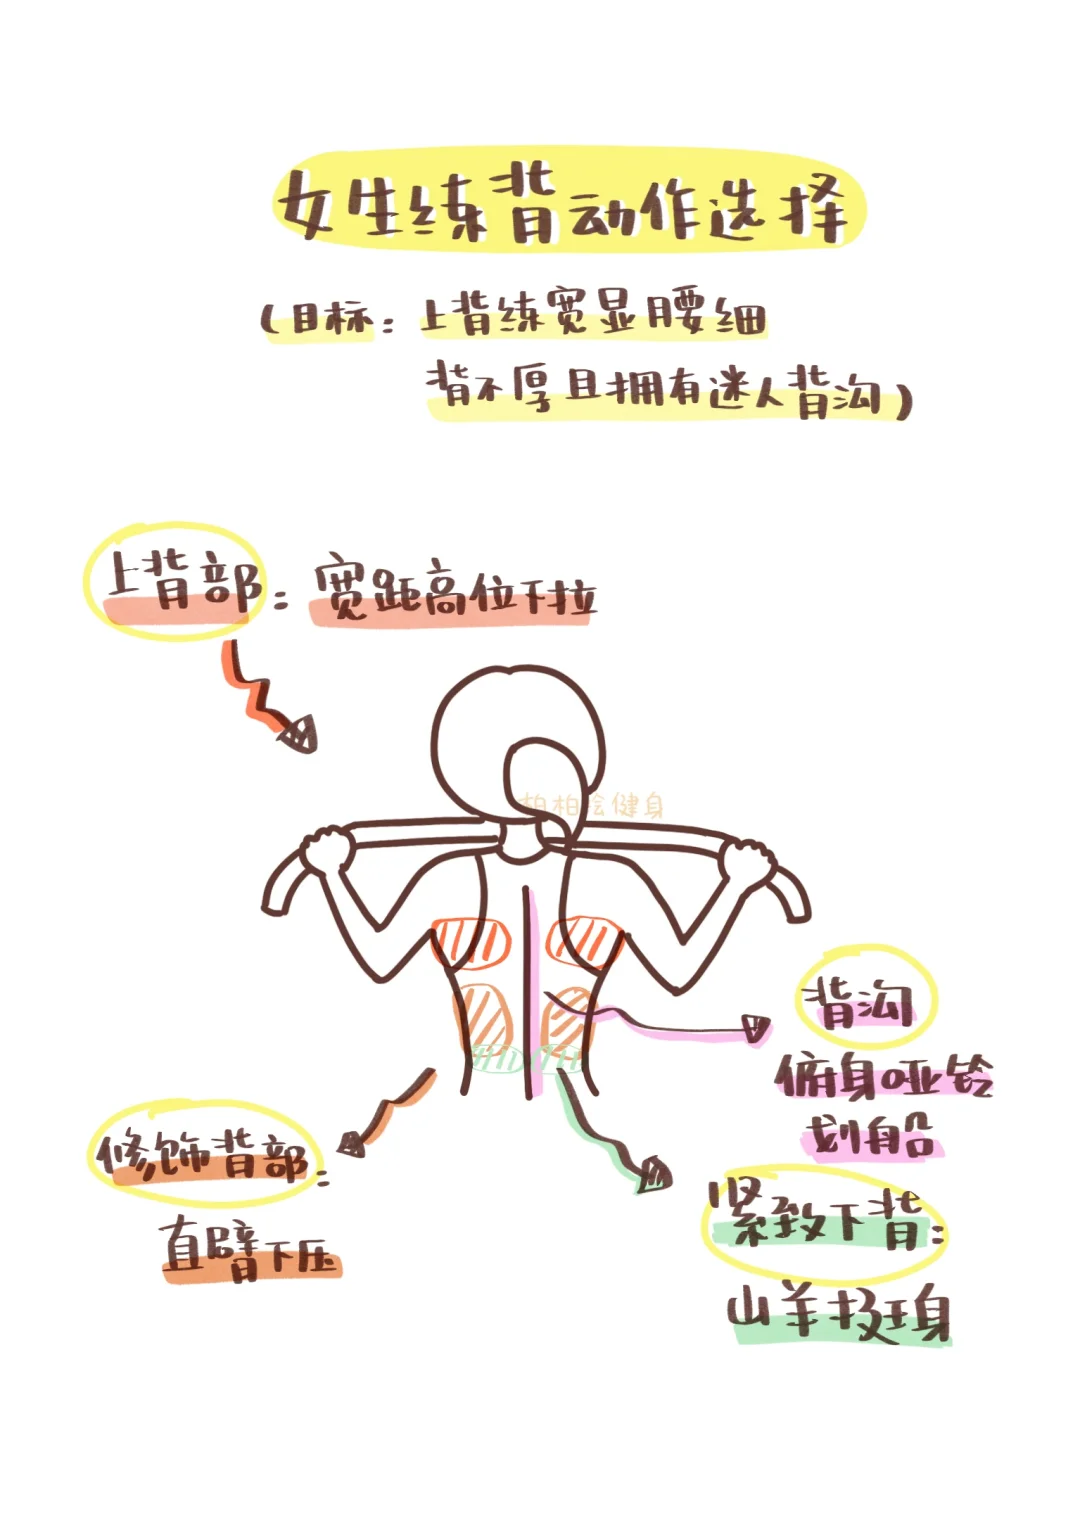 女生练背动作选择
(目标：上背练宽显腰细
背不厚且拥有迷人背沟)
上背部：宽距高位下拉
柏柏绘健身
背沟
俯身哑铃
划船
修饰背部：
直臂下压
紧致下背：
山羊挺身